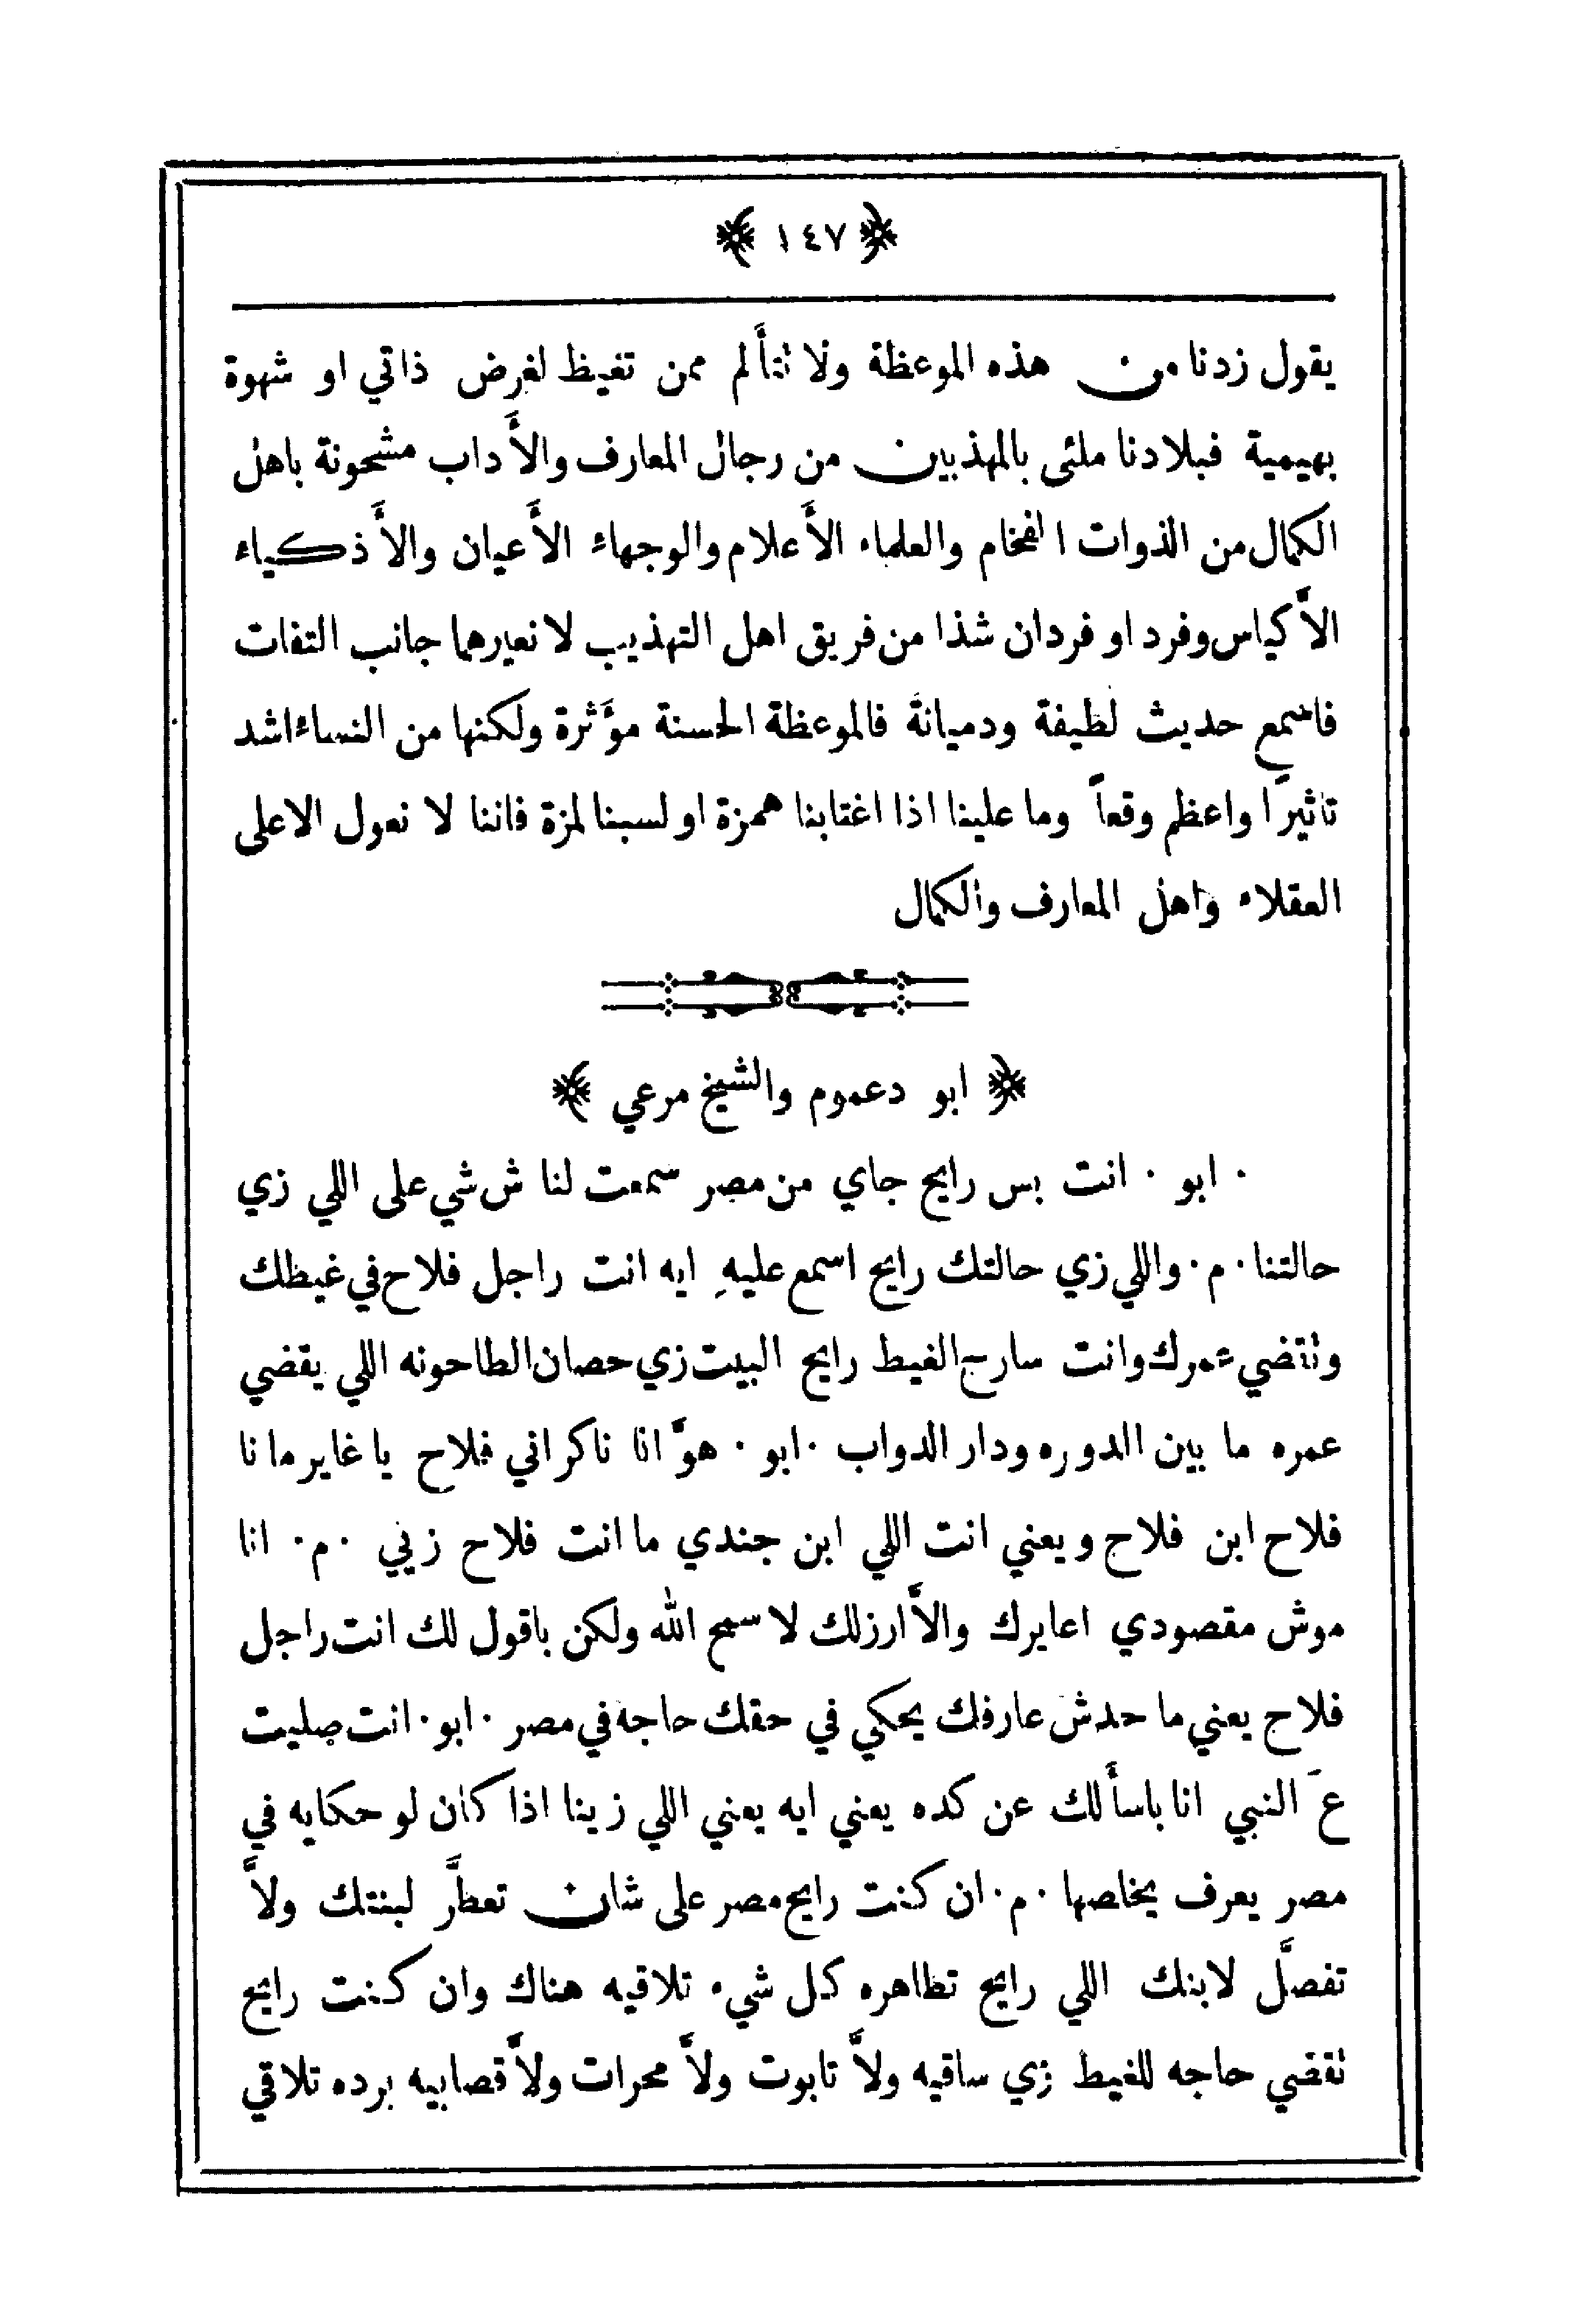 ﴿ ١٤٧ ﴾
يقول زدنا من هذه الموعظة ولا نتأَلم ممن تغيظ لغرض ذاتي او شهوة
بهيمية فبلادنا ملئى بالمهذبين من رجال المعارف والأَداب مشحونة باهل
الكمال من الذوات الفخام والعلماء الأَعلام والوجهاء الأَعيان والأَذكياء
الأَكياس وفرد او فردان شذا من فريق اهل التهذيب لا نعيرهما جانب التفات
فاسمع حديث لطيفة ودميانة فالموعظة الحسنة موَّثرة ولكنها من النساء اشد
تاثيرًا واعظم وقعاً وما علينا اذا اغتابنا همزة او لسبنا لمزة فاننا لا نعول الا على
العقلاء واهل المعارف والكمال
﴿ ابو دعموم والشيخ مرعي ﴾
٠ ابو ٠ انت بس رايح جاي من مصر سمعت لنا ش شي على اللي زي
حالتنا ٠ م ٠ واللي زي حالتك رايح اسمع عليهِ ايه انت راجل فلاح في غيطك
ونتقضي عمرك وانت سارح الغيط رايح البيت زي حصان الطاحونه اللي يقضي
عمره ما بين الدوره ودار الدواب ٠ ابو ٠ هوَّ انا ناكر اني فلاح يا غاير ما نا
فلاح ابن فلاح ويعني انت اللي ابن جندي ما انت فلاح زيي ٠ م ٠ انا
موش مقصودي اعايرك والاَّ ارزلك لا سمح الله ولكن باقول لك انت راجل
فلاح يعني ما حدش عارفك يحكي في حقك حاجه في مصر ٠ ابو ٠ انت صليت
عَ النبي انا باسأَلك عن كده يعني ايه يعني اللي زينا اذا كان لو حكايه في
مصر يعرف يخلصها ٠ م ٠ ان كنت رايح مصر على شان تعطَّر لبنتك ولاَّ
تفصَّل لابنك اللي رايح تطاهره كل شيء تلاقيه هناك وان كنت رايح
نقضي حاجه للغيط زي ساقيه ولاَّ تابوت ولاَّ محرات ولاَّ قصابيه برده تلاقي